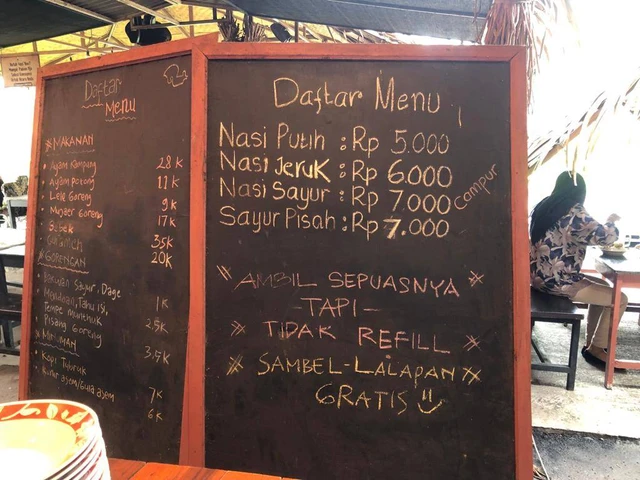 Daftar
Menu
MAKANAN
Ayam Kampung 28 K
Ayam potong 11 K
Lele Goreng 9 K
Mujaer Goreng 17 K
Bebek 35K
20K
GORENGAN
Bakwan Sayur, Dage 1 K
Mendoan, Tahu isi,
Tempe 2.5K
Pisang Goreng 3.5K
MINUMAN
Kopi Tubruk 7K
Kunir asem/Gula asem 6K
Daftar Menu
Nasi Putih : Rp 5.000
Nasi Jeruk : Rp 6.000
Nasi Sayur : Rp 7.000 campur
Sayur Pisah : Rp 7.000
AMBIL SEPUASNYA
- TAPI -
TIDAK REFILL
SAMBEL-LALAPAN
GRATIS